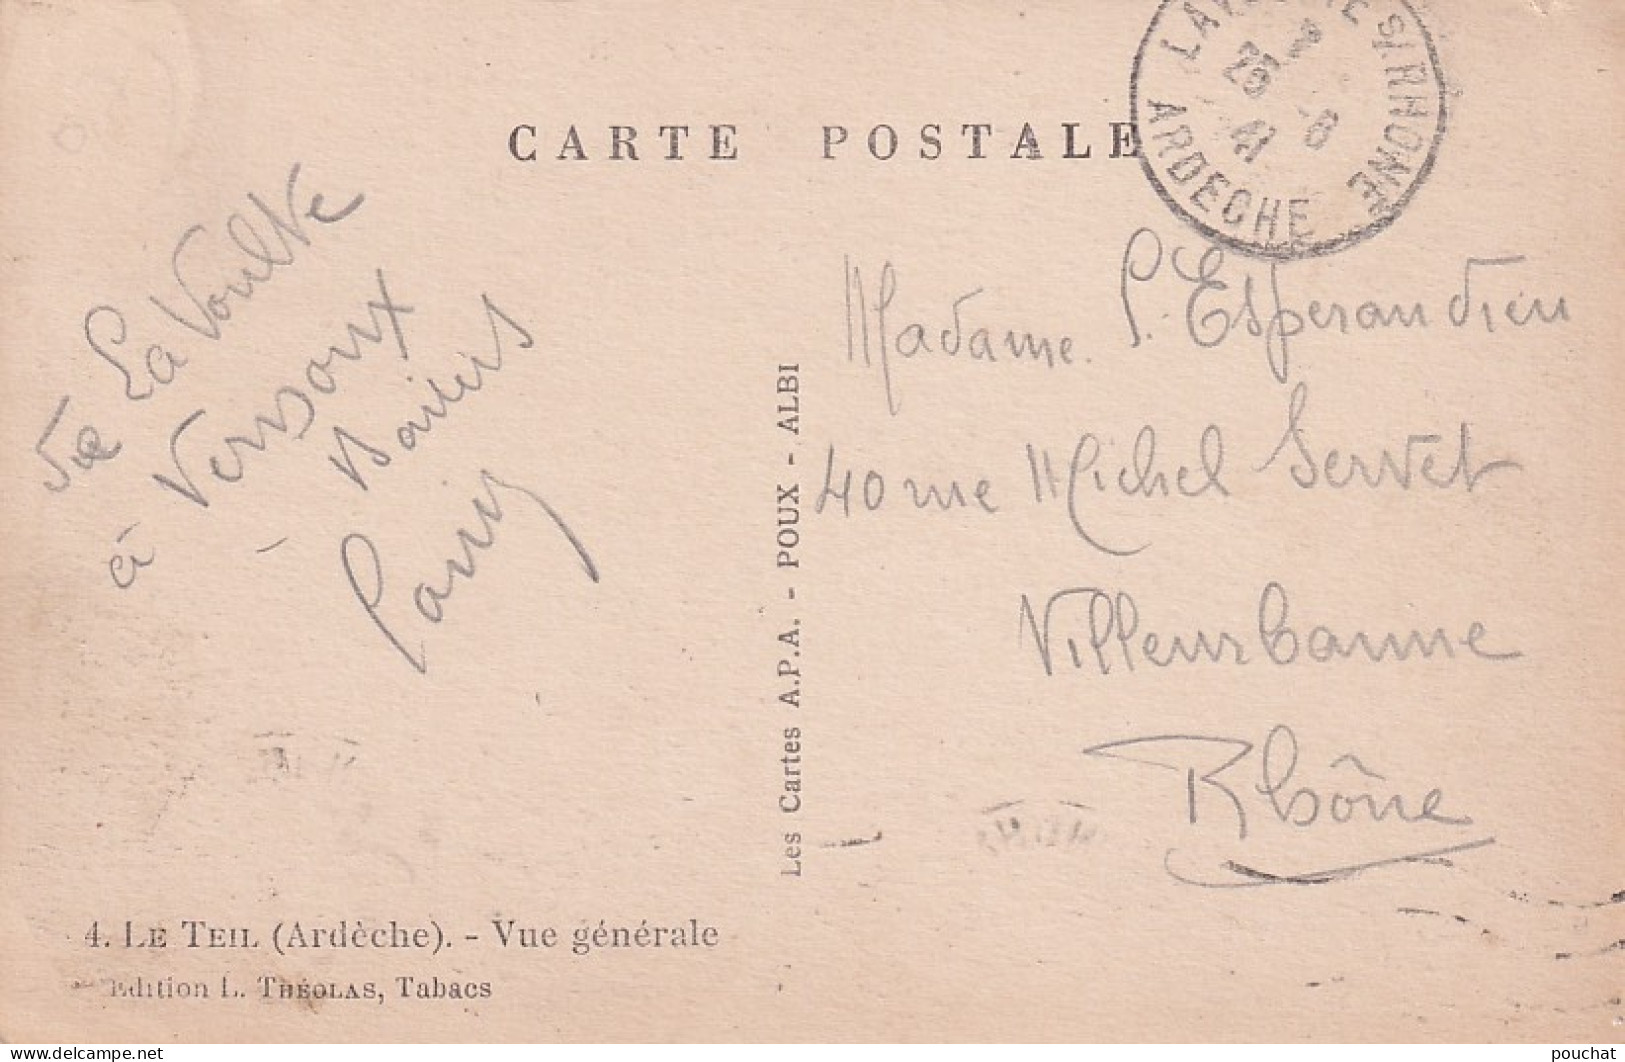 CARTE POSTALE
S/RHONE
25
41
ARDECHE
de La Voulte
à Vernoux
Baisers
Madame. P. Esperandieu
40 rue Michel Servet
Villeurbanne
Rhône
Les Cartes A.P.A. - POUX - ALBI
4. LE TEIL (Ardèche). - Vue générale
Edition L. THÉOLAS, Tabacs
pouchat